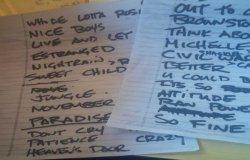 WHOLE LOTTA ROSI
NICE BOYS
LIVE AND LET
ESTRANGED
NIGHTRAIN
SWEET CHILD
JUNGLE
NOVEMBER
PARADISE
DONT CRY
PATIENCE CRAZY
HEAVENS DOOR
OUT TO
BROWNST
THINK ABOU
MICHELLE
CIVIL
BETTER
U COULD
ITS SO
ATTITUDE
SO FINE